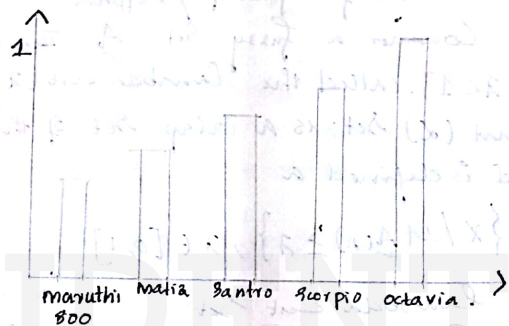 1
maruthi 800
matiz
Santro
Scorpio
octavia.